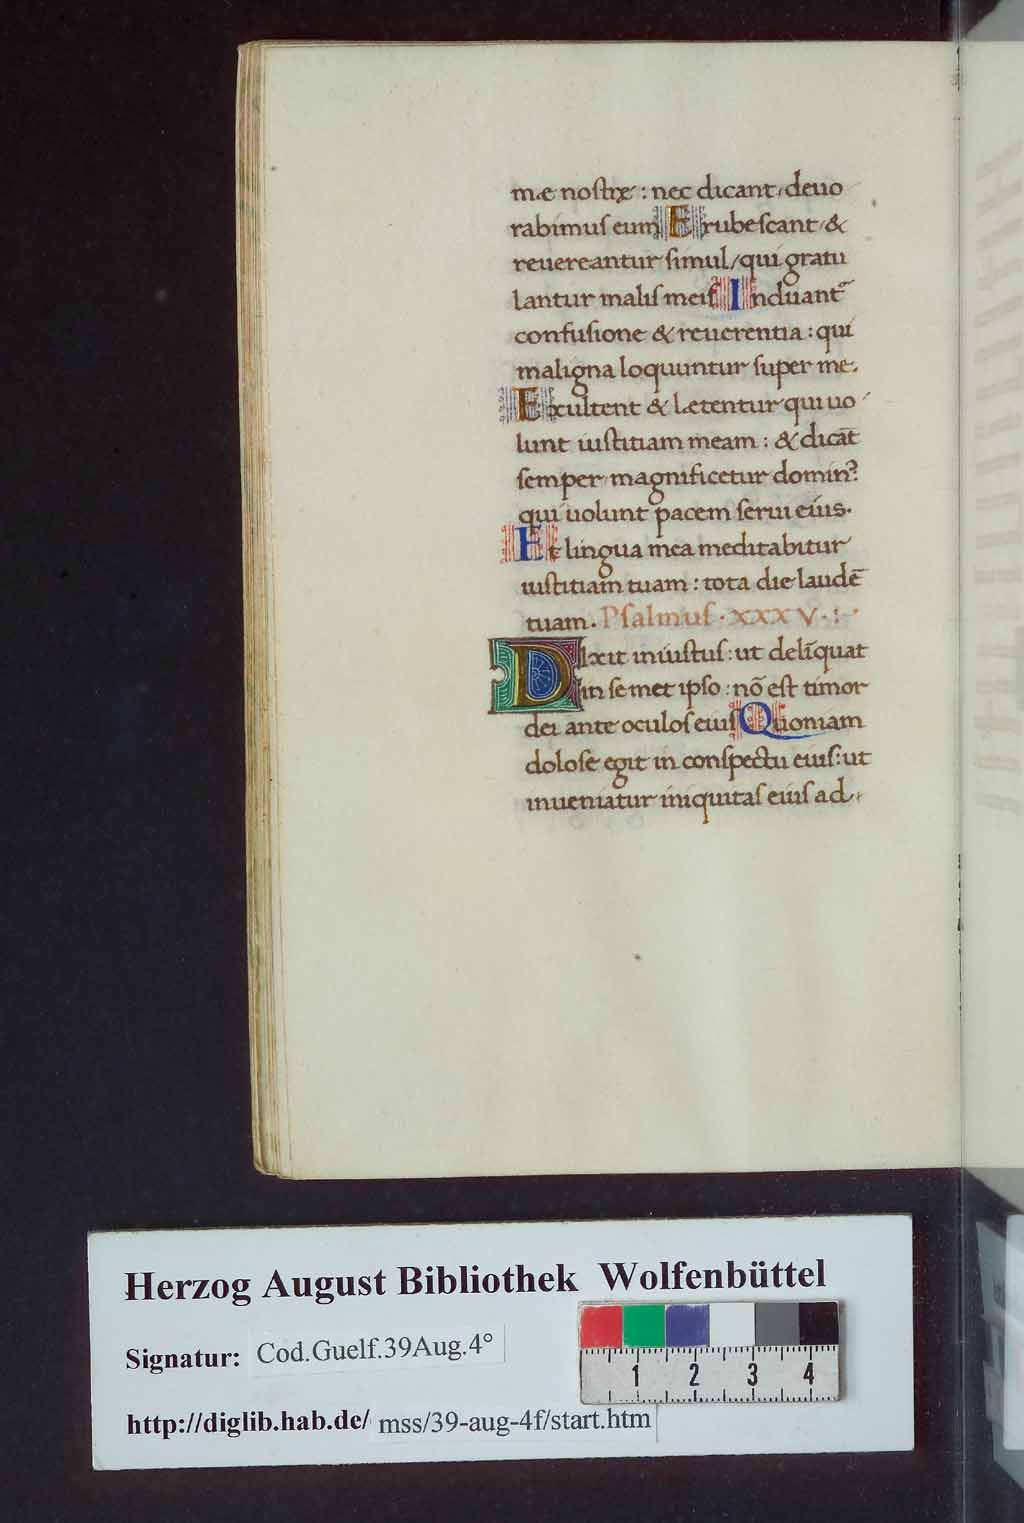 mæ nostræ : nec dicant, deuo
rabimus eum Erubescant, &
reuereantur simul, qui gratu
lantur malis meis Induant᷑
confusione & reuerentia : qui
maligna loquuntur super me.
Exultent & lætentur qui uo
lunt iustitiam meam : & dicāt
semper magnificetur dominꝰ:
qui uolunt pacem serui eius.
Et lingua mea meditabitur
iustitiam tuam : tota die laudē
tuam. Psalmus · xxxv · :
Dixit iniustus : ut delīquat
in semet ipso : nō est timor
dei ante oculos eius Quoniam
dolose egit in conspectu eius : ut
inueniatur iniquitas eius ad
Herzog August Bibliothek Wolfenbüttel
Signatur: Cod.Guelf.39Aug.4°
http://diglib.hab.de/ mss/39-aug-4f/start.htm
1 2 3 4